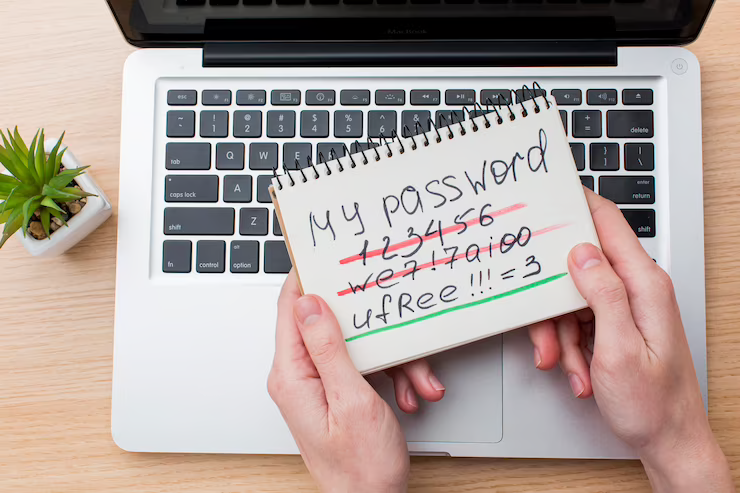 MacBook
esc
! 1 @ 2 # 3 $ 4 % 5 ^ 6
delete
tab Q W E
caps lock A
enter return
shift Z
shift
fn control alt option
My password
123456
we7!7aioo
ufRee!!!=3